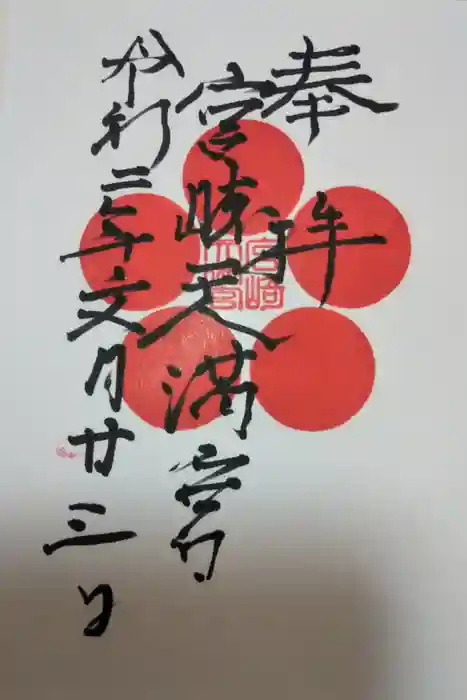 奉拝
宮崎天満宮
令和二年文月廿三日
宮崎